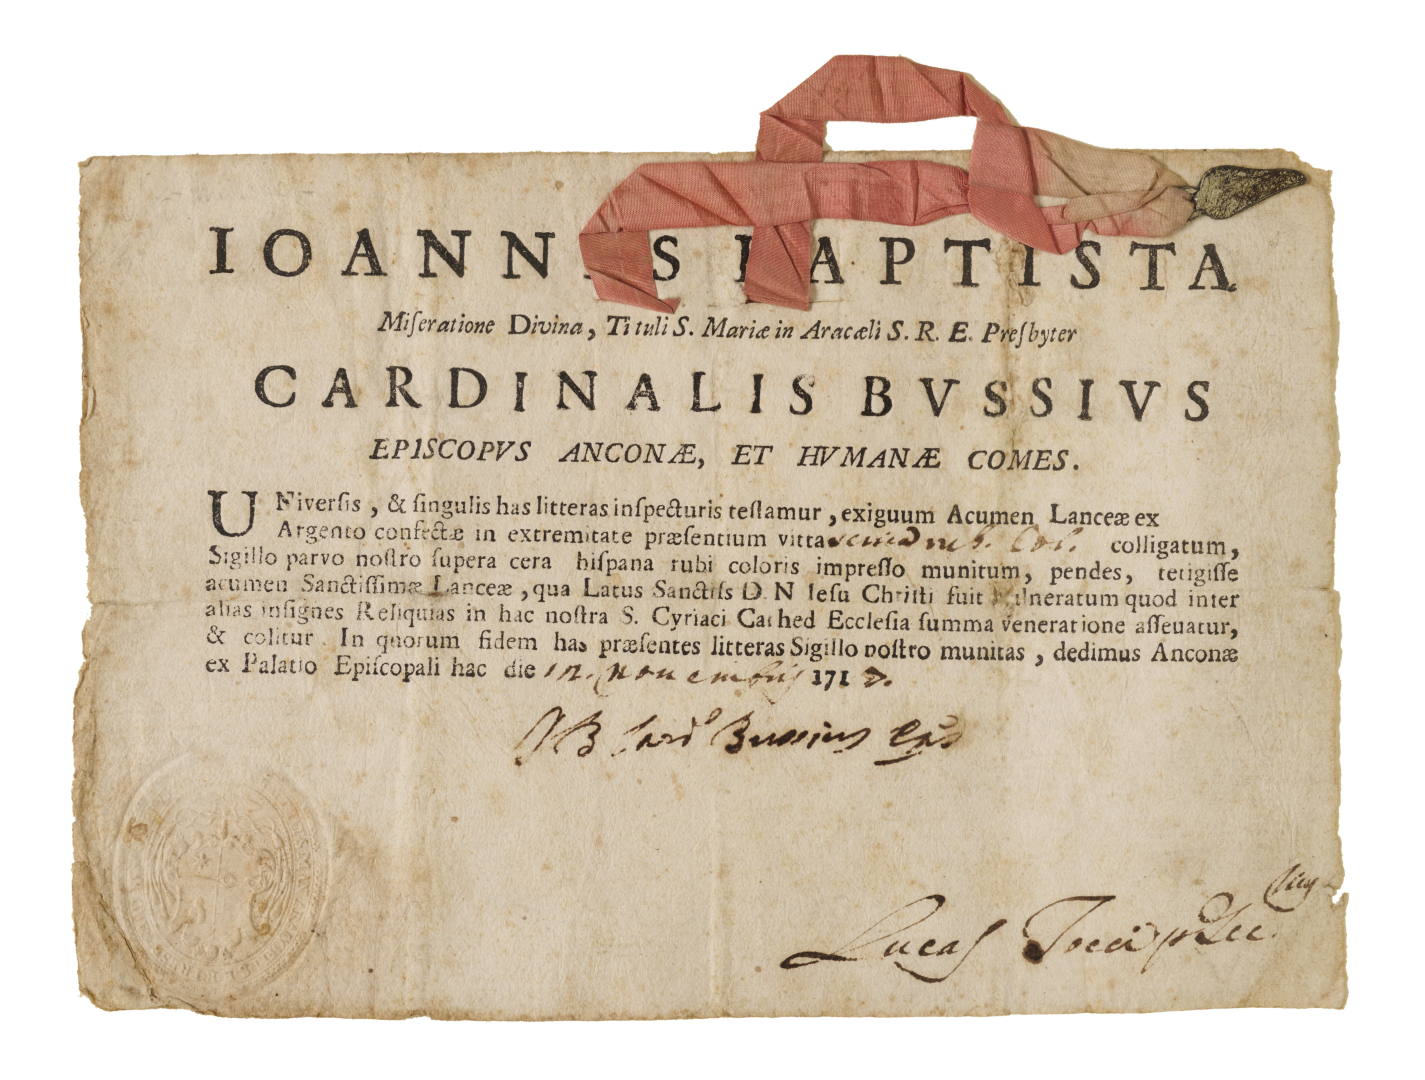 IOANNIS BAPTISTA
Miſeratione Divina, Tituli S. Mariæ in Aracæli S. R. E. Preſbyter
CARDINALIS BVSSIVS
EPISCOPVS ANCONÆ, ET HVMANÆ COMES.
UNiverſis, & ſingulis has litteras inſpecturis teſtamur, exiguum Acumen Lanceæ ex
Argento confectæ in extremitate præſentium vitta Col. colligatum,
Sigillo parvo noſtro ſupera cera hiſpana rubi coloris impreſſo munitum, pendes, tetigiſſe
acumen Sanctiſſimæ Lanceæ, qua Latus Sanctiſs D. N Ieſu Chriſti fuit Vulneratum quod inter
alias inſignes Reliquias in hac noſtra S. Cyriaci Cathed Eccleſia ſumma veneratione aſſevatur,
& colitur. In quorum fidem has præſentes litteras Sigillo noſtro munitas, dedimus Anconæ
ex Palatio Epiſcopali hac die 12. Novembris 171
JB Card Bussius Eps
Lucas Tocci